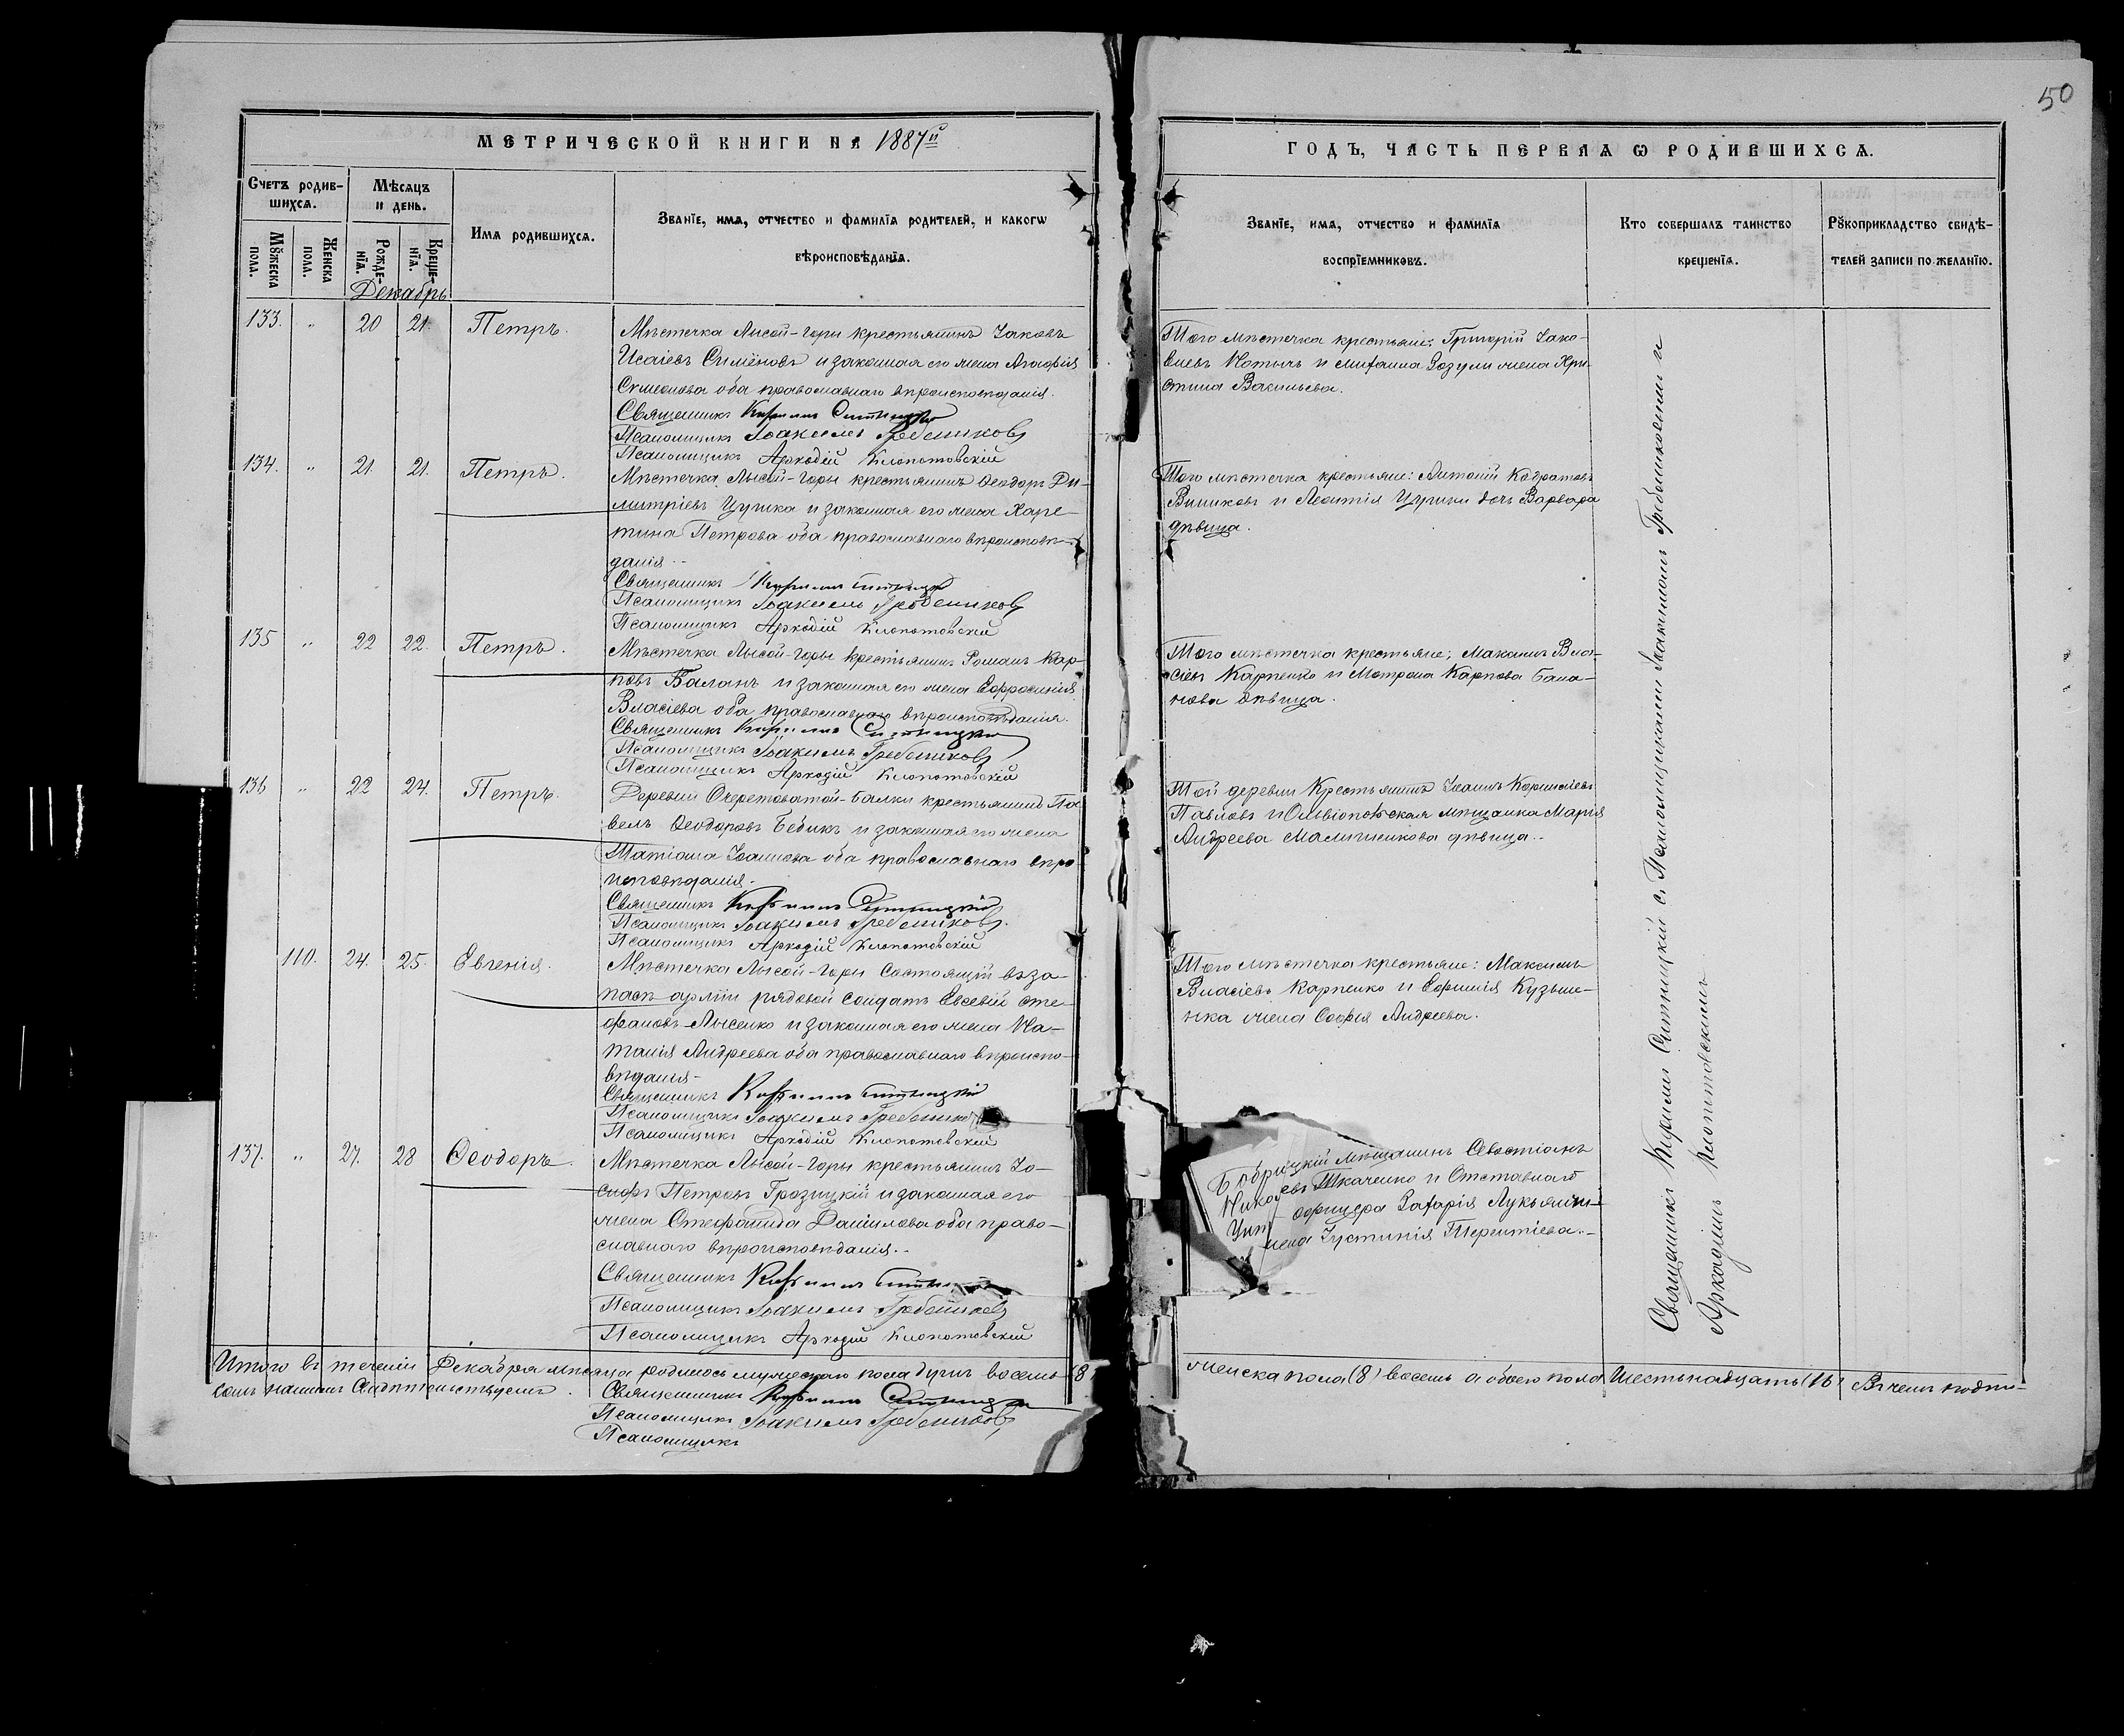 50
МЕТРИЧЕСКОЙ КНИГИ НА 1887й
ГОДЪ, ЧАСТЬ ПЕРВАЯ Ѡ РОДИВШИХСѦ.
Счетъ родив-
шихсѧ.
Мѣсѧцъ
и день.
Имѧ родившихсѧ.
Званїе, имѧ, отчество и фамилїѧ родителей, и какогѡ
вѣроисповѣданїѧ.
Мꙋжеска
пола.
Женска
пола.
Рожде-
нїѧ.
Креще-
нїѧ.
Званїе, имѧ, отчество и фамилїѧ
воспрїемниковъ.
Кто совершалъ таинство
крещенїѧ.
Рꙋкоприкладство свидѣ-
телей записи по желанїю.
Декабрь
133. " 20 21. Петръ.
Мѣстечка Лысой-Горы крестьянинъ Іаковъ
Исаіевъ Симёновъ и законная его жена Агафія
Симеонова оба православнаго вѣроисповѣданія.
Священникъ Кириллъ Ситницкій
Псаломщикъ Іоакимъ Гребениковъ
Псаломщикъ Аркадій Клопотовскій
Того мѣстечка крестьяне: Григорій Іако-
влевъ и жена Хри-
стина Васильева.
134. " 21. 21. Петръ.
Мѣстечка Лысой-Горы крестьянинъ Ѳеодоръ Ди-
митріевъ Цуркa и законная его жена Харе-
тина Петрова оба православнаго вѣроисповѣ-
данія.
Священникъ Кириллъ Ситницкій
Псаломщикъ Іоакимъ Гребениковъ
Псаломщикъ Аркадій Клопотовскій
Того мѣстечка крестьяне: Антоній Кодратовъ
и Леонтія Цурки дочь Варвара
дѣвица.
135 " 22 22. Петръ.
Мѣстечка Лысой-Горы крестьянинъ Романъ Кар-
повъ Баланъ и законная его жена Евфросинія
Власіева оба православнаго вѣроисповѣданія.
Священникъ Кириллъ Ситницкій
Псаломщикъ Іоакимъ Гребениковъ
Псаломщикъ Аркадій Клопотовскій
Того мѣстечка крестьяне: Максимъ Вла-
сіевъ Карпенко и Матрона Карпова Бала-
нова дѣвица.
136 " 22 24. Петръ.
Деревни Очеретоватой-Балки крестьянинъ Па
велъ Ѳеодоровъ Бедикъ и законная его жена
Татіана Іоаннова оба православнаго вѣро
исповѣданія.
Священникъ Кириллъ Ситницкій
Псаломщикъ Іоакимъ Гребениковъ.
Псаломщикъ Аркадій Клопотовскій
Той деревни Крестьянинъ Іоаннъ Корнилевъ
Павловъ и Ольвіопольская мѣщанка Марія
Андреева Мальчикова дѣвица.
110. 24. 25. Евгенія.
Мѣстечка Лысой-Горы Состоящій въ за-
пасѣ арміи рядовой солдатъ Евсевій Сте-
фановъ Лысенко и законная его жена На-
талія Андреева оба православнаго вѣроиспо-
вѣданія-
Священникъ Кириллъ Ситницкій
Псаломщикъ Іоакимъ Гребениковъ
Псаломщикъ Аркадій Клопотовскій
Того мѣстечка крестьяне: Максимъ
Власіевъ Карпенко и Евфимія Кузьме-
нка жена Софія Андреева.
137. " 27. 28 Ѳеодоръ.
Мѣстечка Лысой-Горы крестьянинъ Іо-
сифъ Петровъ Грозицкій и законная его
жена Стефанида Даніилова оба право-
славнаго вѣроисповѣданія.
Священникъ Кириллъ Ситницкій
Псаломщикъ Іоакимъ Гребениковъ
Псаломщикъ Аркадій Клопотовскій
Бобрицкій мѣщанинъ Севастіанъ
Никол евъ Ткаченко и Отставнаго
Унт офицера Захарія Лукьянчи-
жена Іустинія Терентіева.-
Священникъ Кириллъ Ситницкій съ Псаломщиками Іоакимомъ Гребениковымъ и
Аркадіемъ Клопотовскимъ
Итого въ теченіи Декабря мѣсяца родилось мужескаго пола душъ восемь (8
женска пола (8) восемь а обоего пола Шестьнадцать (16) Въ чемъ подпи-
Священникъ Кириллъ Ситницкій
Псаломщикъ Іоакимъ Гребениковъ
Псаломщикъ